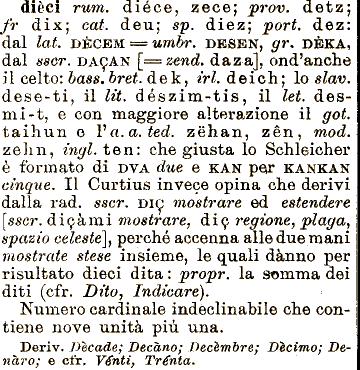 dièci rum. diéce, zece; prov. detz;
fr dix; cat. deu; sp. diez; port. dez:
dal lat. DÈCEM = umbr. DESEN, gr. DÈKA,
dal sscr. DAÇAN [= zend. daza], ond'anche
il celto: bass. bret. dek, irl. deich; lo slav.
dese-ti, il lit. dészim-tis, il let. des-
mi-t, e con maggiore alterazione il got.
taihun e l'a. a. ted. zëhan, zên, mod.
zehn, ingl. ten: che giusta lo Schleicher
è formato di DVA due e KAN per KANKAN
cinque. Il Curtius invece opina che derivi
dalla rad. sscr. DIÇ mostrare ed estendere
[sscr. diçàmi mostrare, diç regione, plaga,
spazio celeste], perché accenna alle due mani
mostrate stese insieme, le quali dànno per
risultato dieci dita: propr. la somma dei
diti (cfr. Dito, Indicare).
Numero cardinale indeclinabile che con-
tiene nove unità più una.
Deriv. Dècade; Decàno; Decèmbre; Dècimo; De-
nàro; e cfr. Vénti, Trénta.